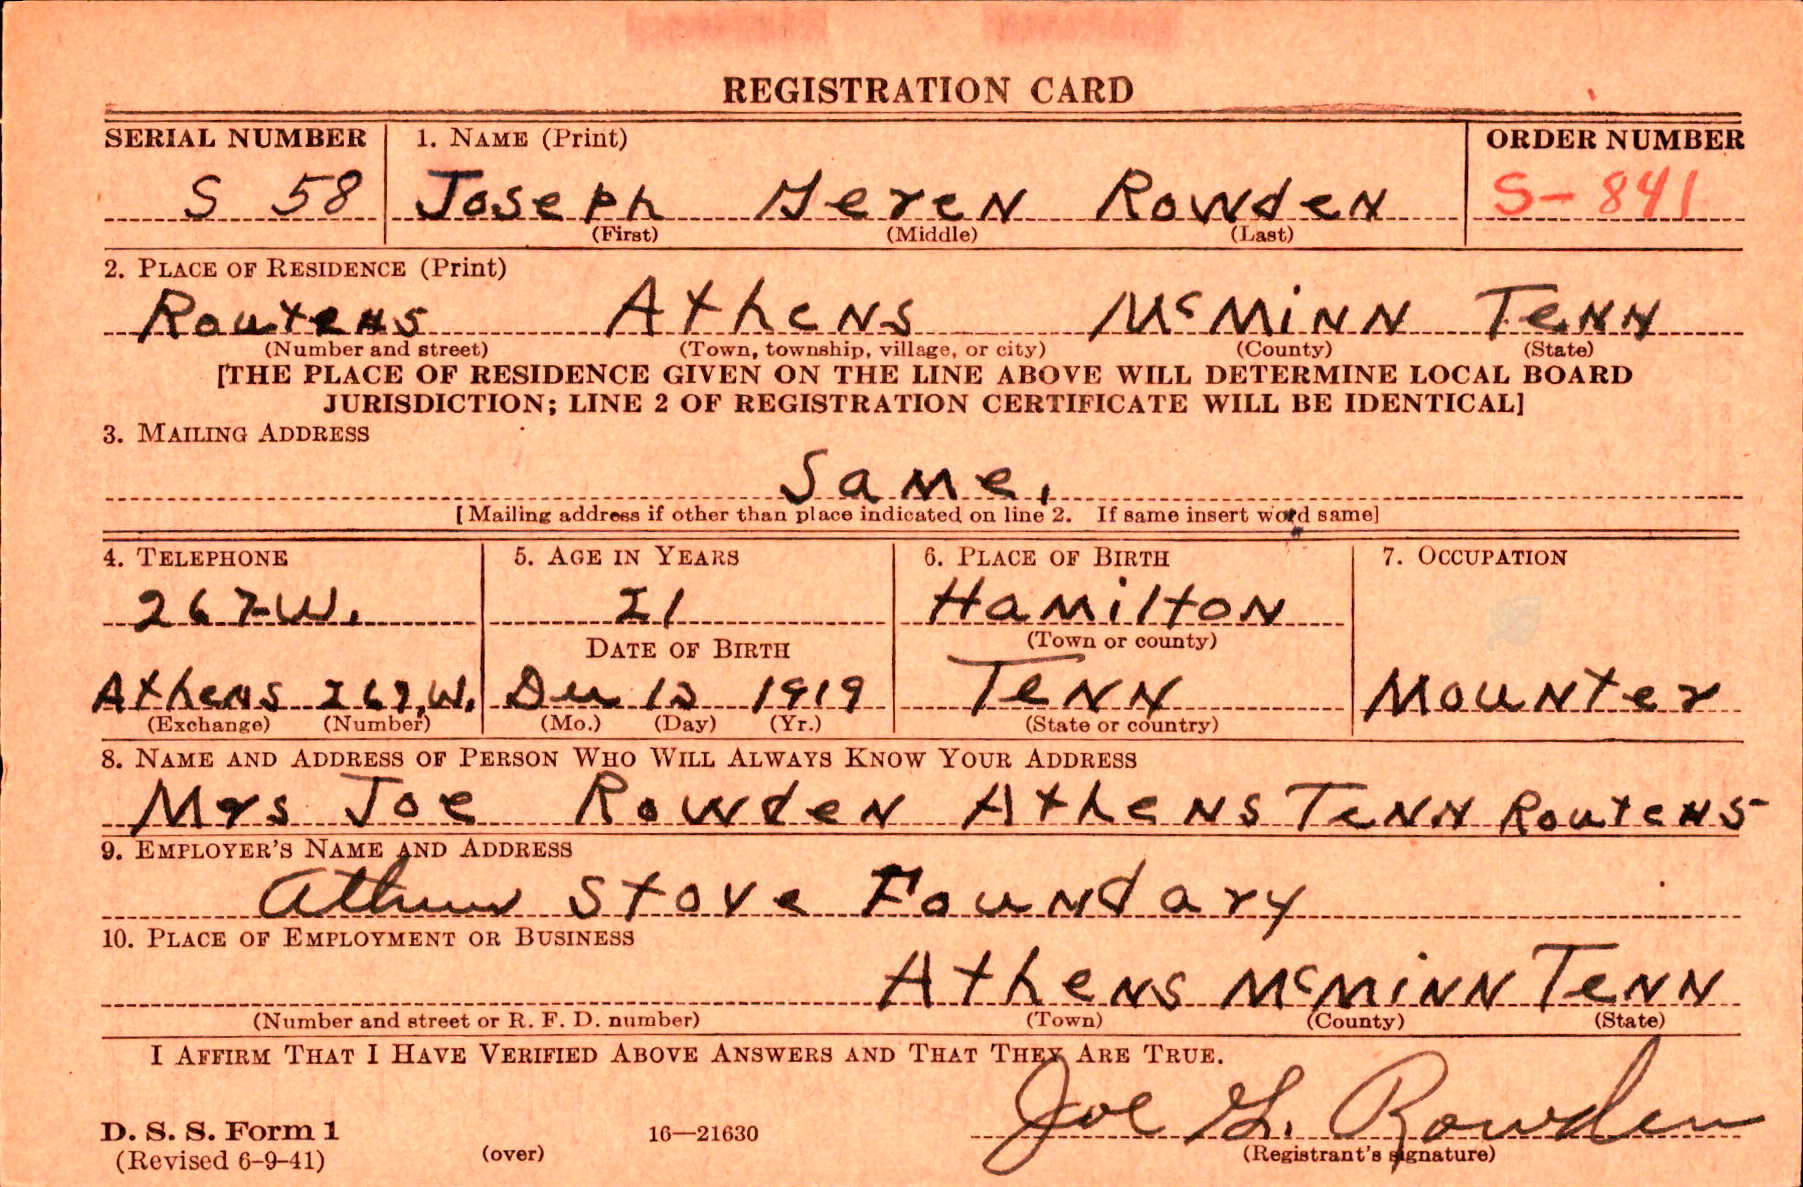 REGISTRATION CARD
SERIAL NUMBER 1. NAME (Print) ORDER NUMBER
S 58 Joseph Geren Rowden S-841
(First) (Middle) (Last)
2. PLACE OF RESIDENCE (Print)
Route#5 Athens McMinn Tenn
(Number and street) (Town, township, village, or city) (County) (State)
[THE PLACE OF RESIDENCE GIVEN ON THE LINE ABOVE WILL DETERMINE LOCAL BOARD
JURISDICTION; LINE 2 OF REGISTRATION CERTIFICATE WILL BE IDENTICAL]
3. MAILING ADDRESS
Same.
[Mailing address if other than place indicated on line 2. If same insert word same]
4. TELEPHONE 5. AGE IN YEARS 6. PLACE OF BIRTH 7. OCCUPATION
267-W. 21 Hamilton
DATE OF BIRTH (Town or county)
Athens 267.W. Dec 12 1919 Tenn Mounter
(Exchange) (Number) (Mo.) (Day) (Yr.) (State or country)
8. NAME AND ADDRESS OF PERSON WHO WILL ALWAYS KNOW YOUR ADDRESS
Mrs Joe Rowden Athens Tenn Route#5
9. EMPLOYER'S NAME AND ADDRESS
Athens Stove Foundary
10. PLACE OF EMPLOYMENT OR BUSINESS
Athens McMinn Tenn
(Number and street or R. F. D. number) (Town) (County) (State)
I AFFIRM THAT I HAVE VERIFIED ABOVE ANSWERS AND THAT THEY ARE TRUE.
Joe G. Rowden
D. S. S. Form 1
(Revised 6-9-41) (over) 16—21630 (Registrant's signature)